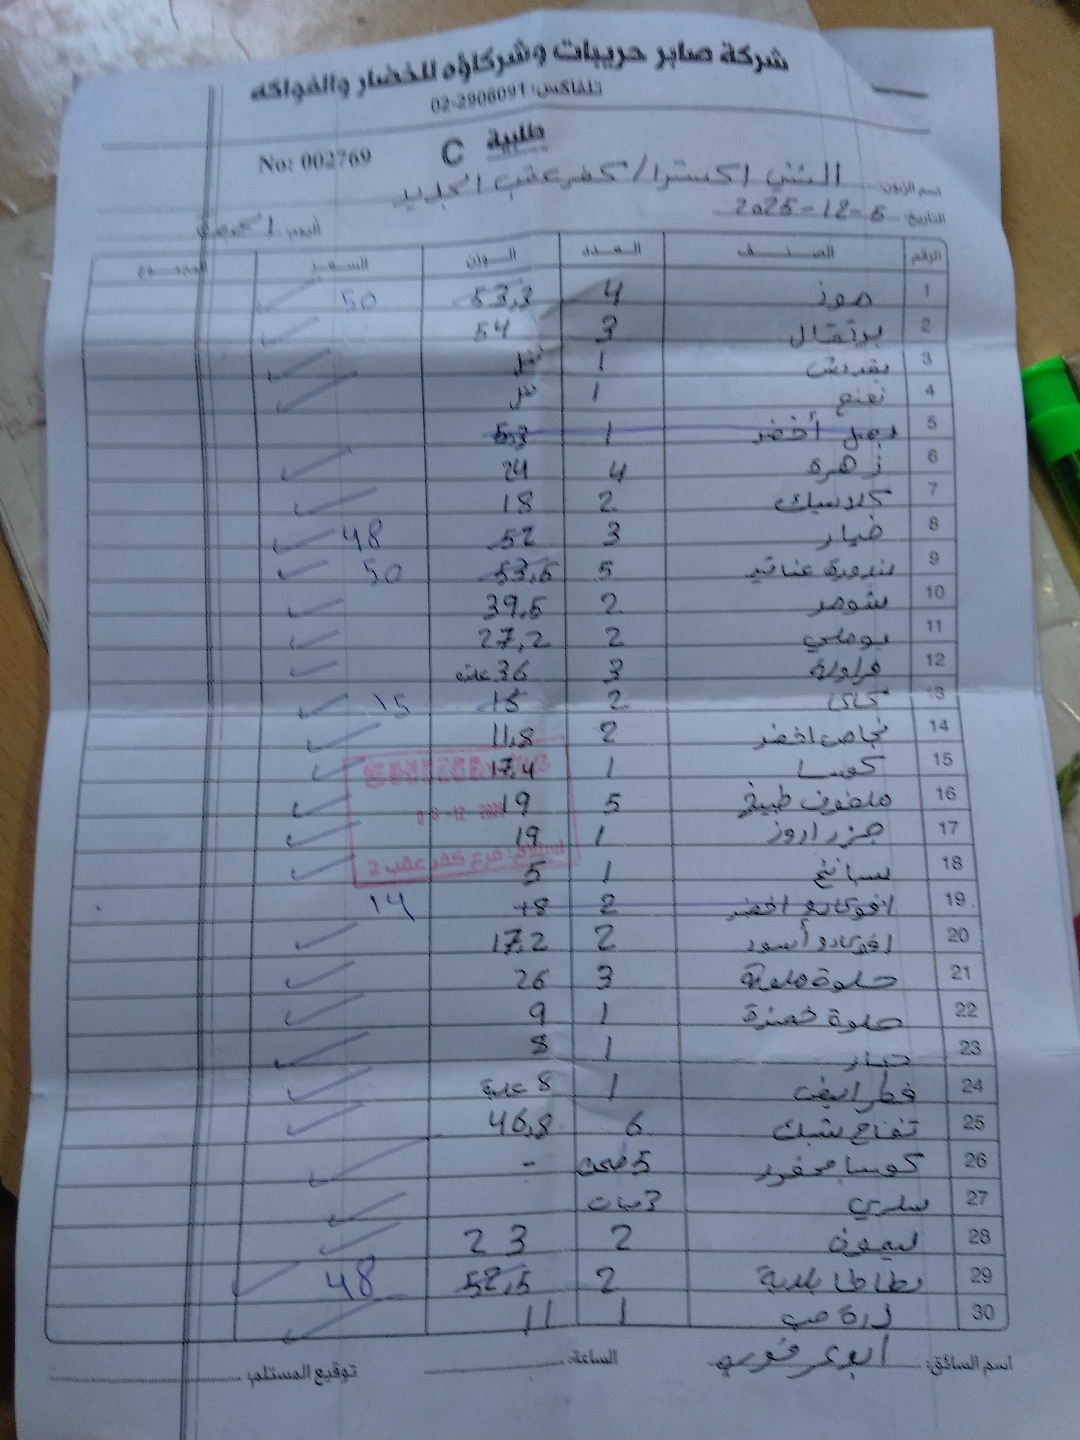 شركة صابر حريبات وشركاؤه للخضار والفواكه
تلفاكس: 02-2906091
طلبية C No: 002769
اسم الزبون: الشني اكسترا / كفر عقب الجديد
التاريخ: 2025-12-5 اليوم: الجمعة
الرقم الصنف العدد الوزن السعر المجموع
1 موز 4 53,3 50
2 برتقال 3 54
3 بقدونس 1
4 نعنع 1
5 بصل أخضر 1 5,3
6 زهرة 4 24
7 كلاسيك 2 18
8 خيار 3 52 48
9 بندورة عناقيد 5 53,5 50
10 شومر 2 39,5
11 بوملي 2 27,2
12 فراولة 3 36 علبة
13 كاكا 2 15 15
14 نجاص اخضر 2 11,8
15 كوسا 1 17,4
16 ملفوف طبيخ 5 19
17 جزر اروز 1 19
18 سبانخ 1 5
19 افوكادو اخضر 2 18 14
20 افوكادو أسود 2 17,2
21 حلوة ملونة 3 26
22 حلوة خضرة 1 9
23 1 8
24 فطر ابيض 1 8 علبة
25 تفاح شبك 6 46,8
26 كوسا محفور 5 -
27 سلري 3 حبات
28 ليمون 2 23
29 بطاطا بلدية 2 52,5 48
30 ذرة حب 1 11
05-12-2025
استلام: فرع كفر عقب 2
اسم السائق: الساعة: توقيع المستلم: